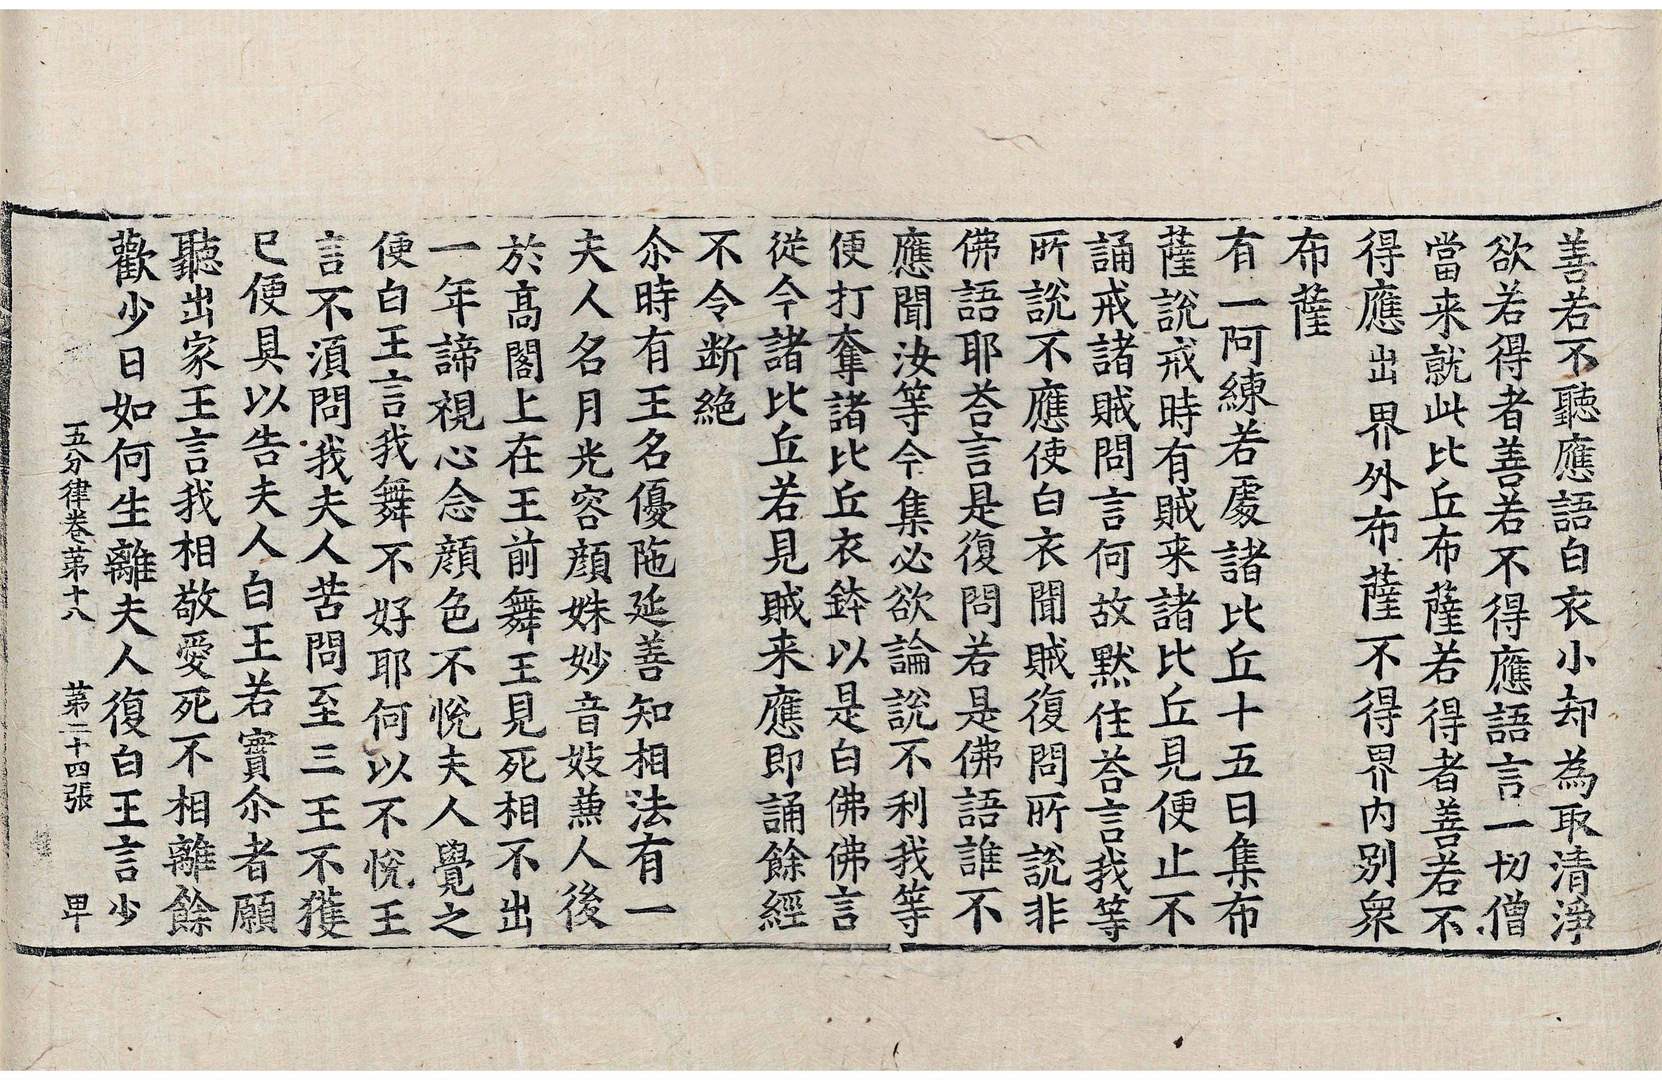 善若不聽應語白衣小却為取清淨
欲若得者善若不得應語言一切僧
當来就此比丘布薩若得者善若不
得應出界外布薩不得界內別衆
布薩
有一阿練若處諸比丘十五日集布
薩說戒時有賊来諸比丘見便止不
誦戒諸賊問言何故默住荅言我等
所說不應使白衣聞賊復問所說非
佛語耶荅言是復問若是佛語誰不
應聞汝等今集必欲論說不利我等
便打奪諸比丘衣鉢以是白佛佛言
從今諸比丘若見賊来應即誦餘經
不令断絶
尒時有王名優陁延善知相法有一
夫人名月光容顔姝妙音妓䕭人後
於高閣上在王前舞王見死相不出
一年諦視心念顔色不悅夫人覺之
便白王言我舞不好耶何以不悅王
言不湏問我夫人苦問至三王不獲
已便具以告夫人白王若實尒者願
聽出家王言我相敬愛死不相離餘
歡少日如何生離夫人復白王言少
五分律卷第十八 第二十四張 甲